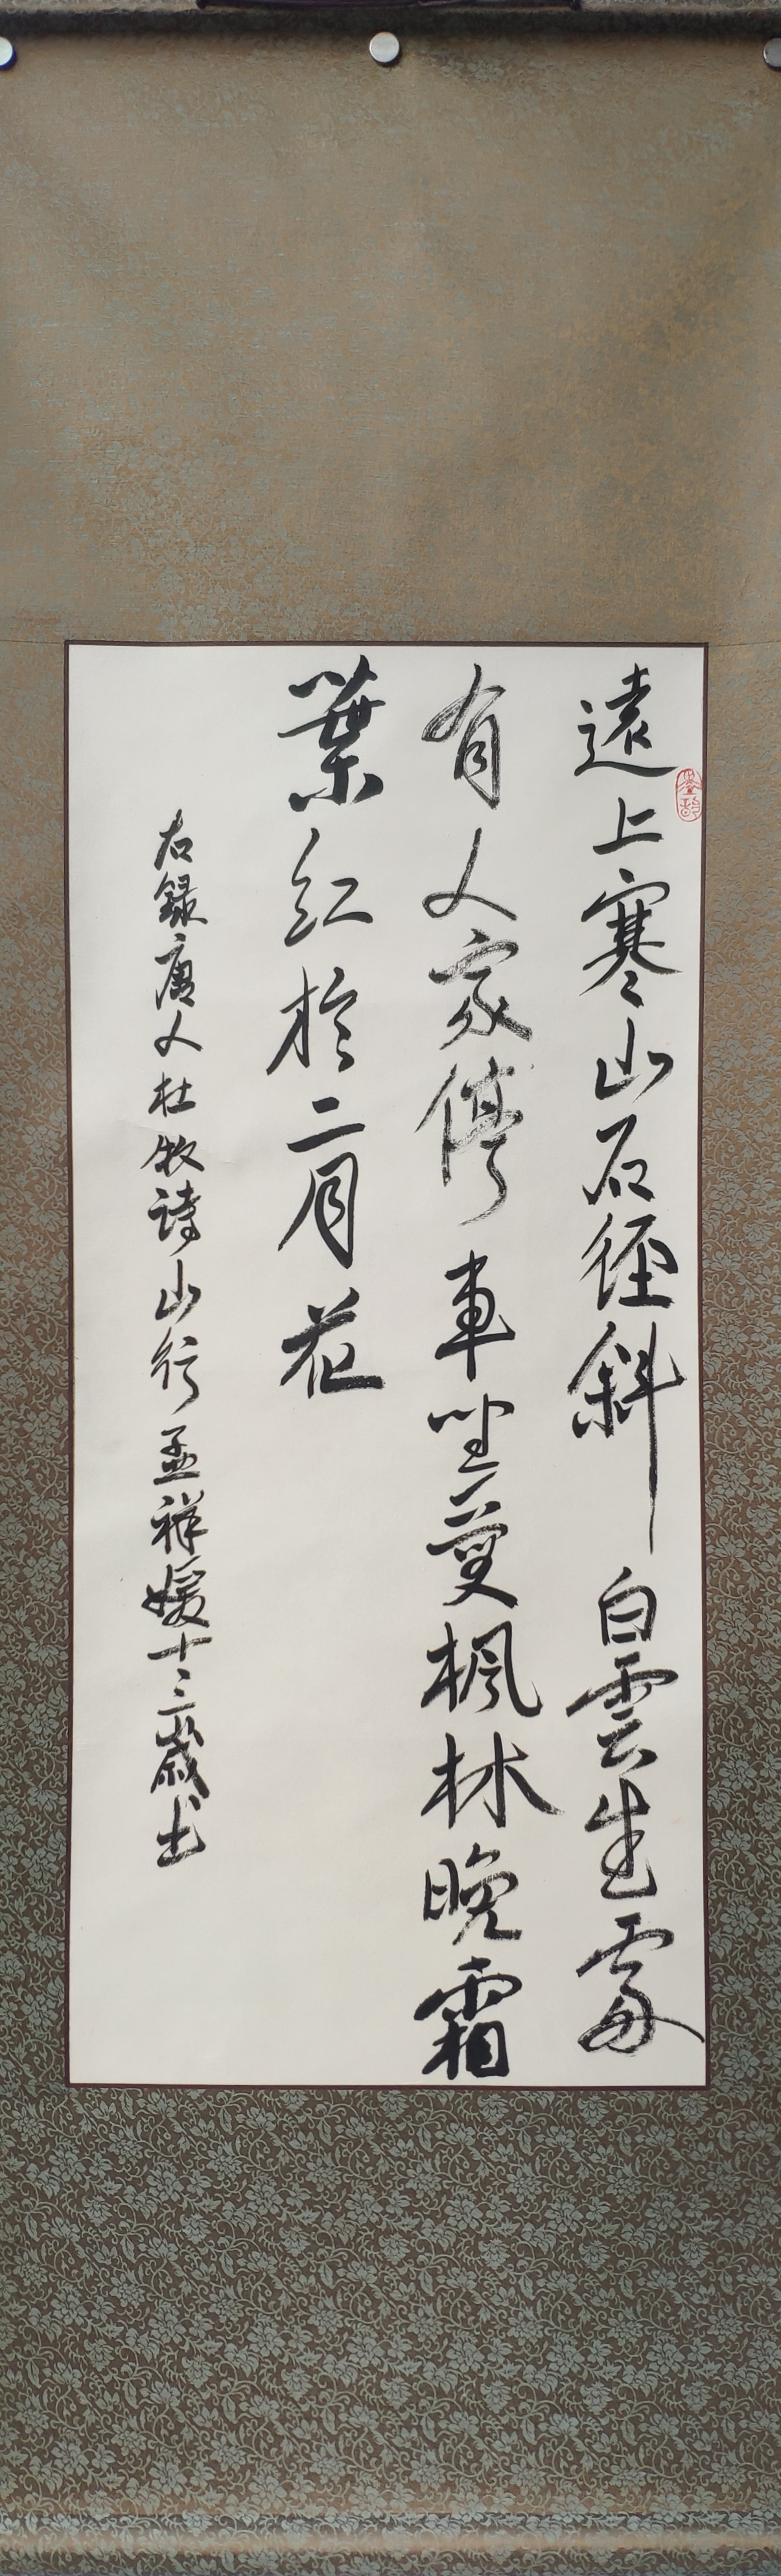 遠上寒山石徑斜白雲生處
有人家停車坐愛楓林晚霜
葉紅於二月花
右錄唐人杜牧詩山行孟祥媛十三歲書